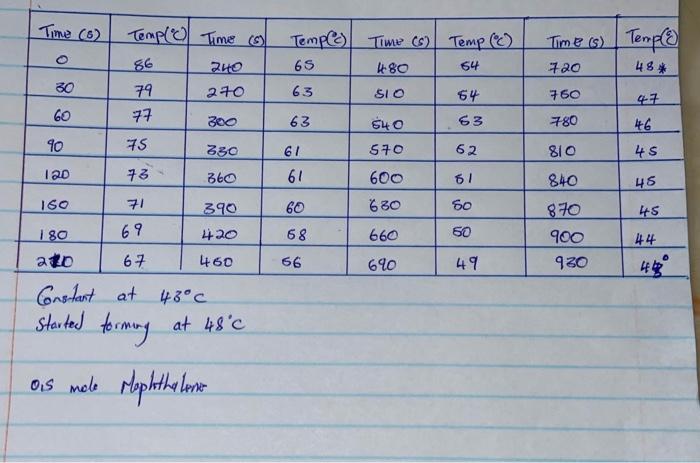 Time (s) Temp(°C) Time (s) Temp(°C) Time (s) Temp (°C) Time (s) Temp(°C)
0 86 240 65 480 54 720 48*
30 79 270 63 510 54 750 47
60 77 300 63 540 53 780 46
90 75 330 61 570 52 810 45
120 73 360 61 600 51 840 45
150 71 390 60 630 50 870 45
180 69 420 58 660 50 900 44
210 67 450 56 690 49 930
Constant at 43°C
Started forming at 48°C
mole